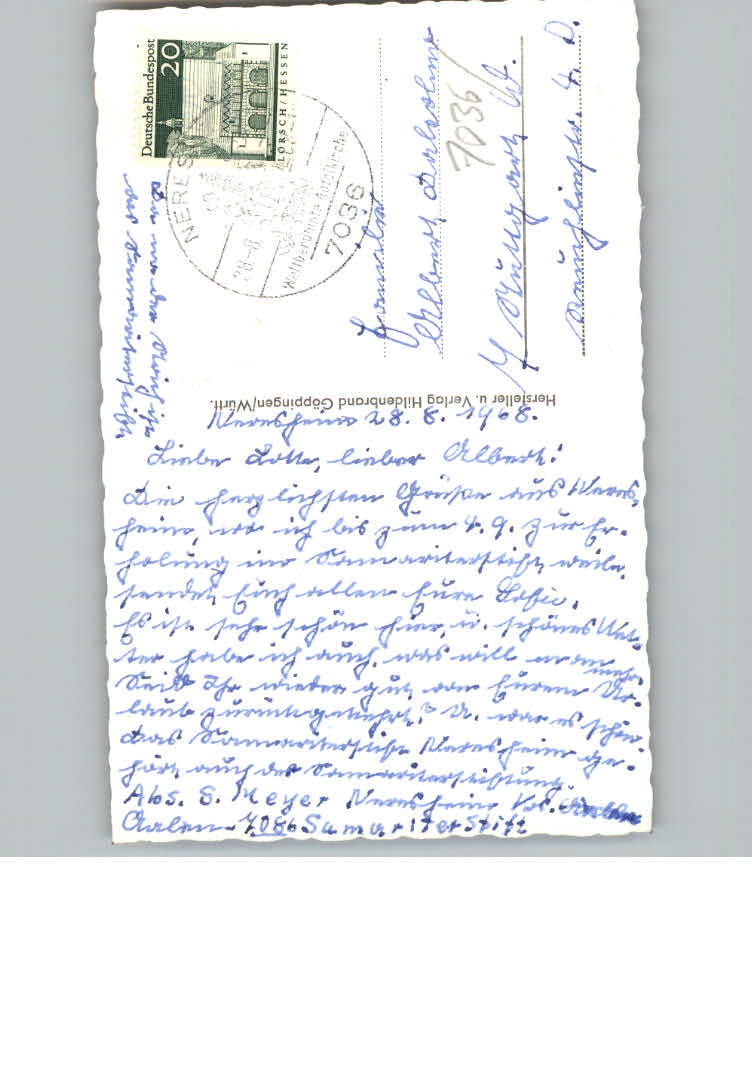 Deutsche Bundespost
20
LORSCH / HESSEN
NERES
28.-8.
Weltberühmte Abteikirche
7036
7036
Familie
Albert
7 Stuttgart W.
4. D.
Hersteller u. Verlag Hildenbrand Göppingen/Württ.
Da wo der Strich ist
das Samariterstift
Neresheim 28. 8. 1968.
Liebe Lotte, lieber Albert!
Die herzlichsten Grüße aus Neres-
heim, wo ich bis zum 4. 9. zur Er-
holung im Samariterstift weile,
sendet Euch allen Eure Sofie.
Es ist sehr schön hier, u. schönes Wet-
ter habe ich auch, was will man mehr.
Seid Ihr wieder gut von Eurem Ur-
laub zurückgekehrt? U. war es schön
Das Samariterstift Neresheim ge-
hört auch der Samariterstiftung.
Abs. S. Meyer Neresheim Kr.
Aalen 7086 Samariterstift